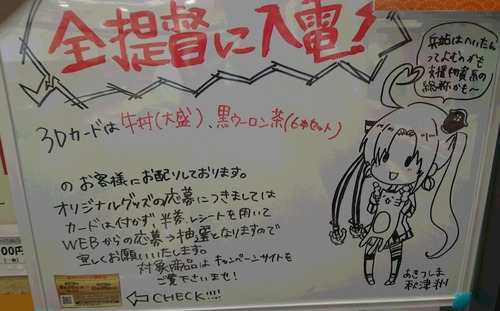 全提督に入電!
3Dカードは 牛丼(大盛)、黒ウーロン茶(6本セット)
のお客様にお配りしております。
オリジナルグッズの応募につきましては
カードは付かず、半券、レシートを用いて
WEBからの応募→抽選となりますので
宜しくお願いいたします。
対象商品はキャンペーンサイトを
ご覧下さいませ!
←CHECK!!!!
兵站はへいたん
ってよむかも
支援物資系の
総称かも〜
あきつしま
秋津洲
00円